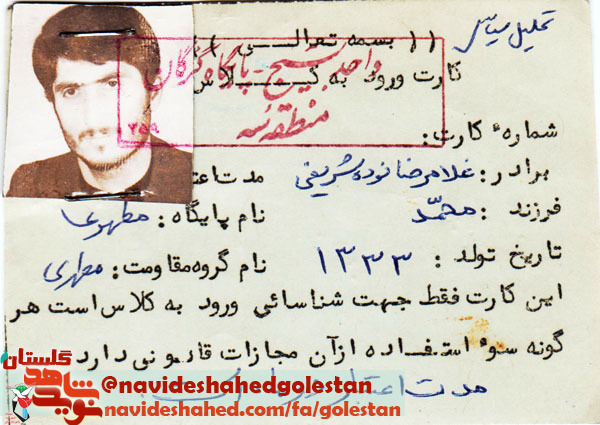 تحلیل سیاسی
(( بسمه تعالی ))
کارت ورود به کلاس
واحد بسیج - پایگاه گرگان
منطقه سه
۲۵۹
شماره کارت:
برادر: غلامرضا نوده شریفی
مدت اعتـ
فرزند : محمّد
نام پایگاه: مطهری
تاریخ تولد : ۱۳۳۳
نام گروه مقاومت: مطهری
این کارت فقط جهت شناسائی ورود به کلاس است هر
گونه سوء استفاده از آن مجازات قانونی دارد
مدت اعتبار
نوید شاهد گلستان
@navideshahedgolestan
navideshahed.com/fa/golestan